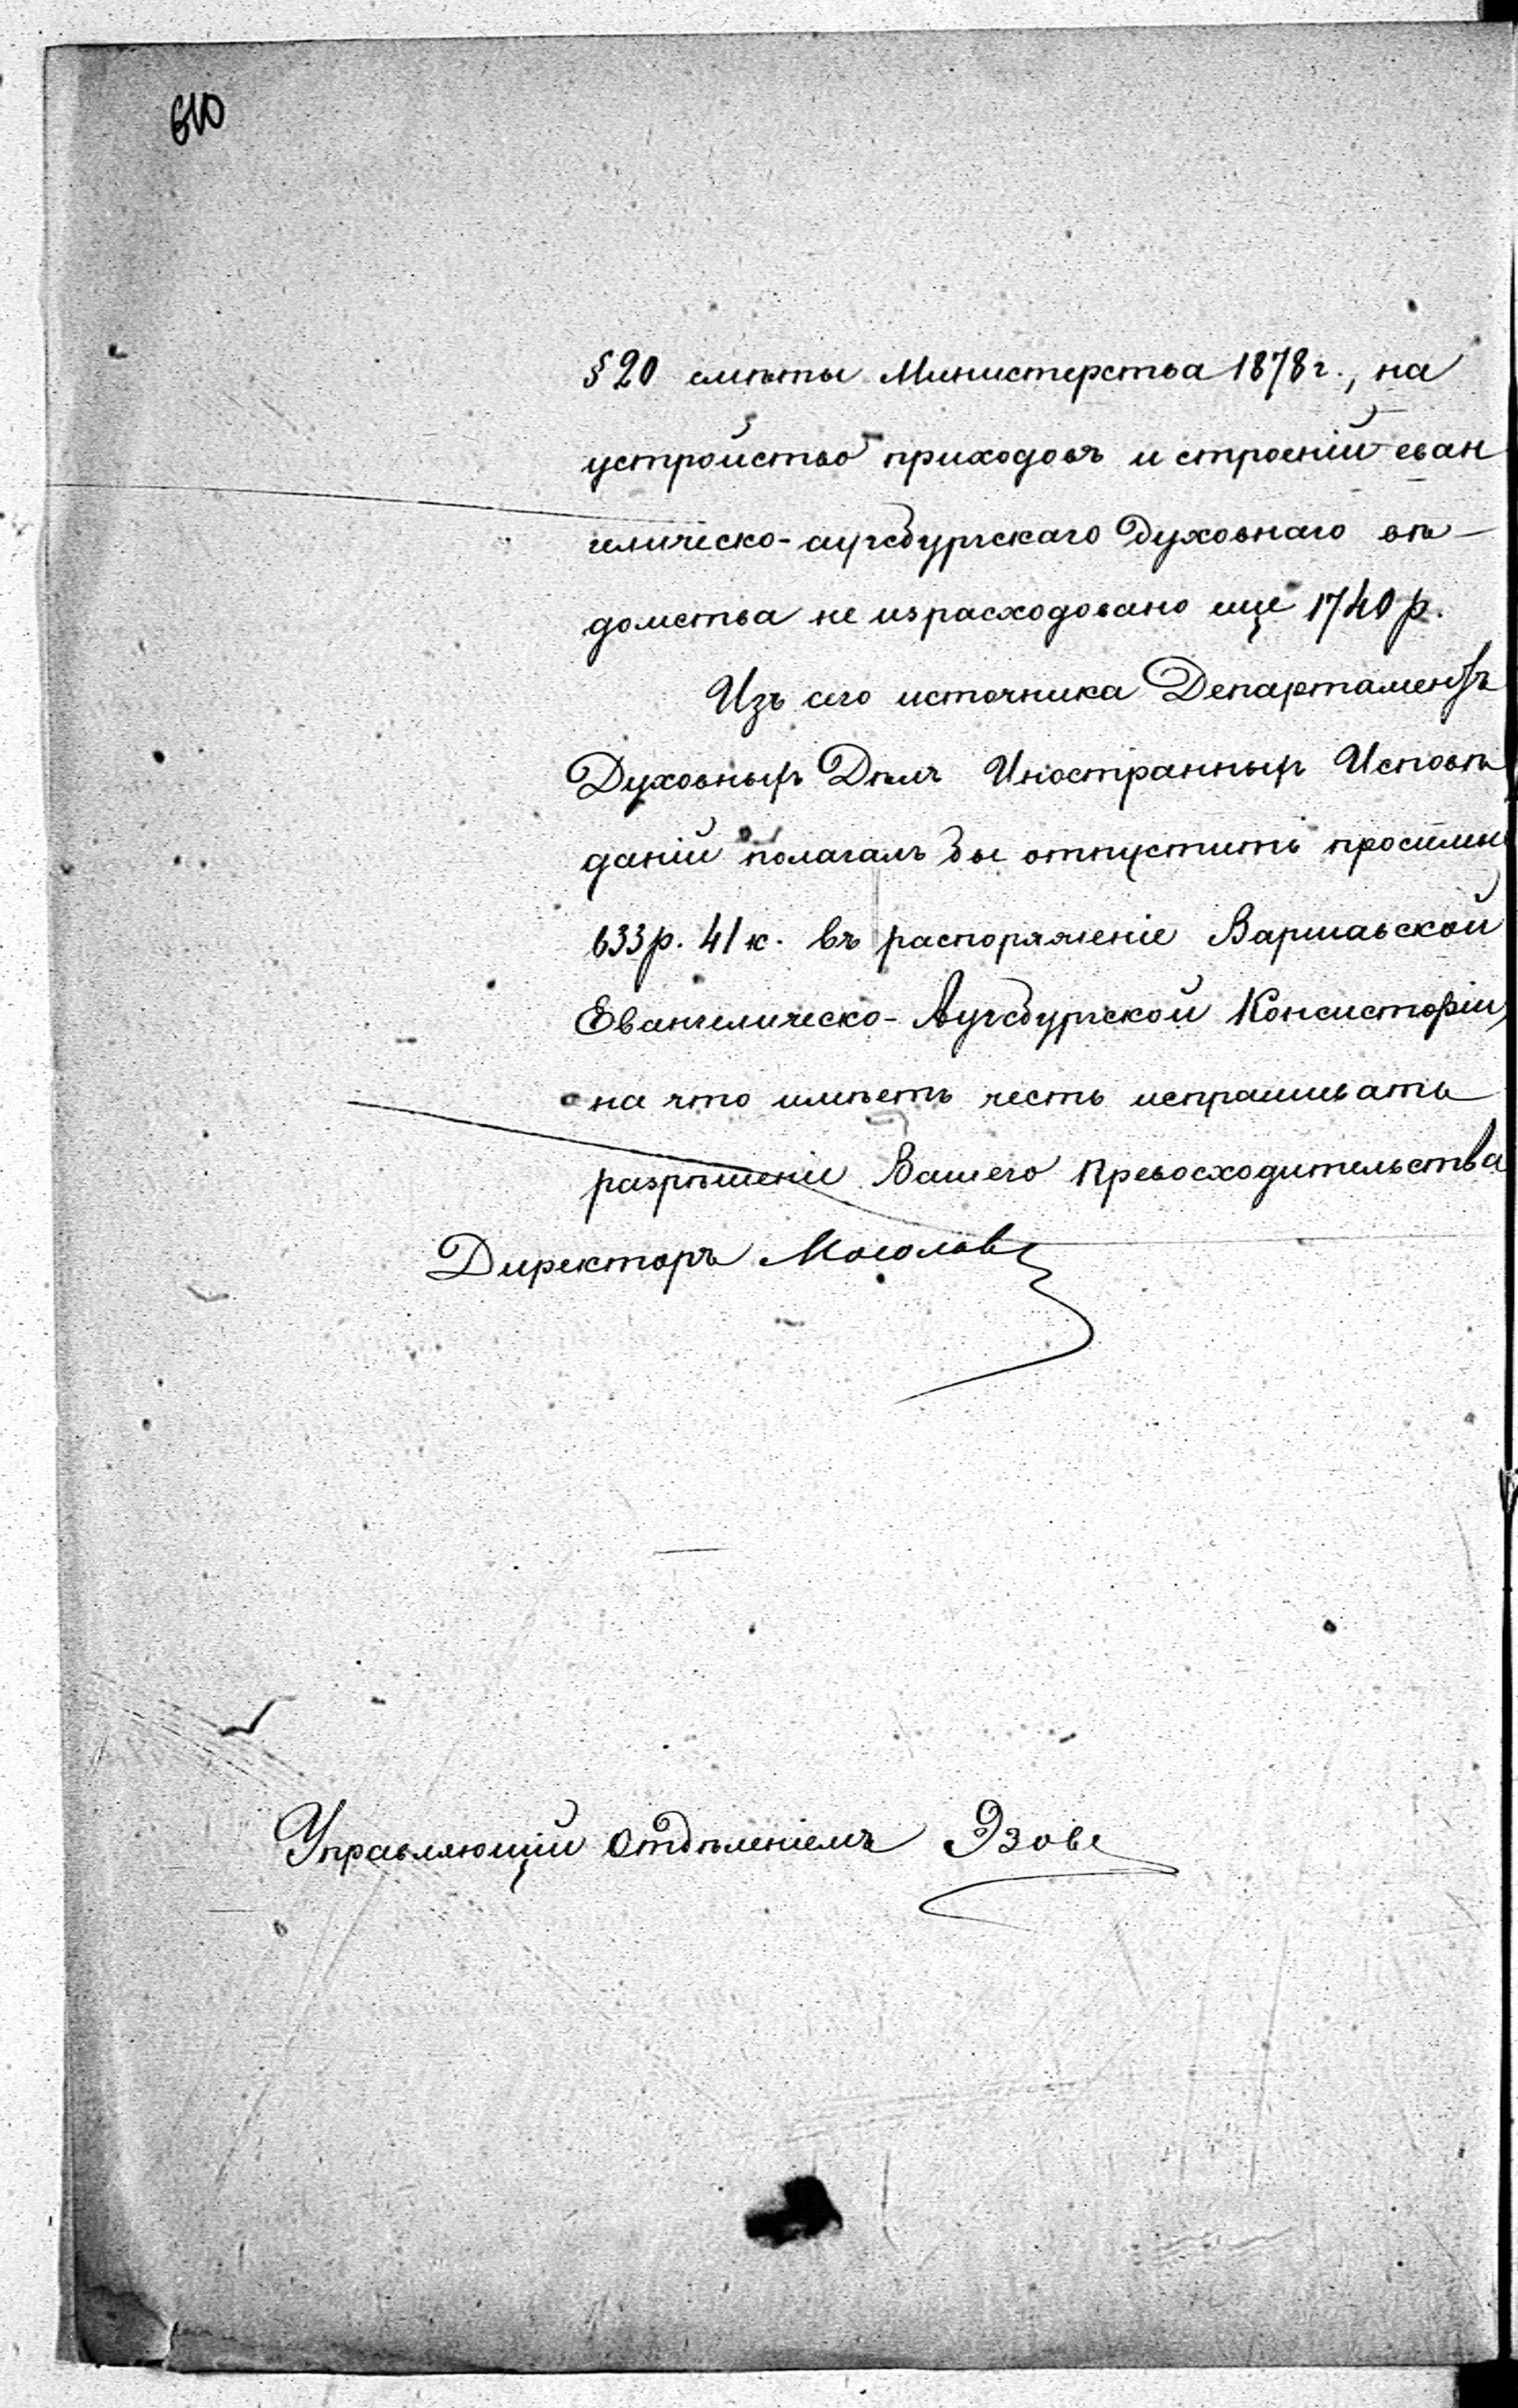 610
§ 20 смѣты Министерства 1878 г., на
устройство приходовъ и строеній еван
гелическо-аугсбургскаго Духовнаго вѣ-
домства не израсходовано еще 1740 р.
Изъ сего источника Департаментъ
Духовныхъ Дѣлъ Иностранныхъ Исповѣ
даній полагалъ бы отпустить просимые
633 р. 41 к. въ распоряженіе Варшавской
Евангелическо-Аугсбургской Консисторіи,
на что имѣетъ честь испрашивать
разрѣшеніе Вашего Превосходительства
Директоръ Мосолов
Управляющій Отдѣленіемъ Эзов